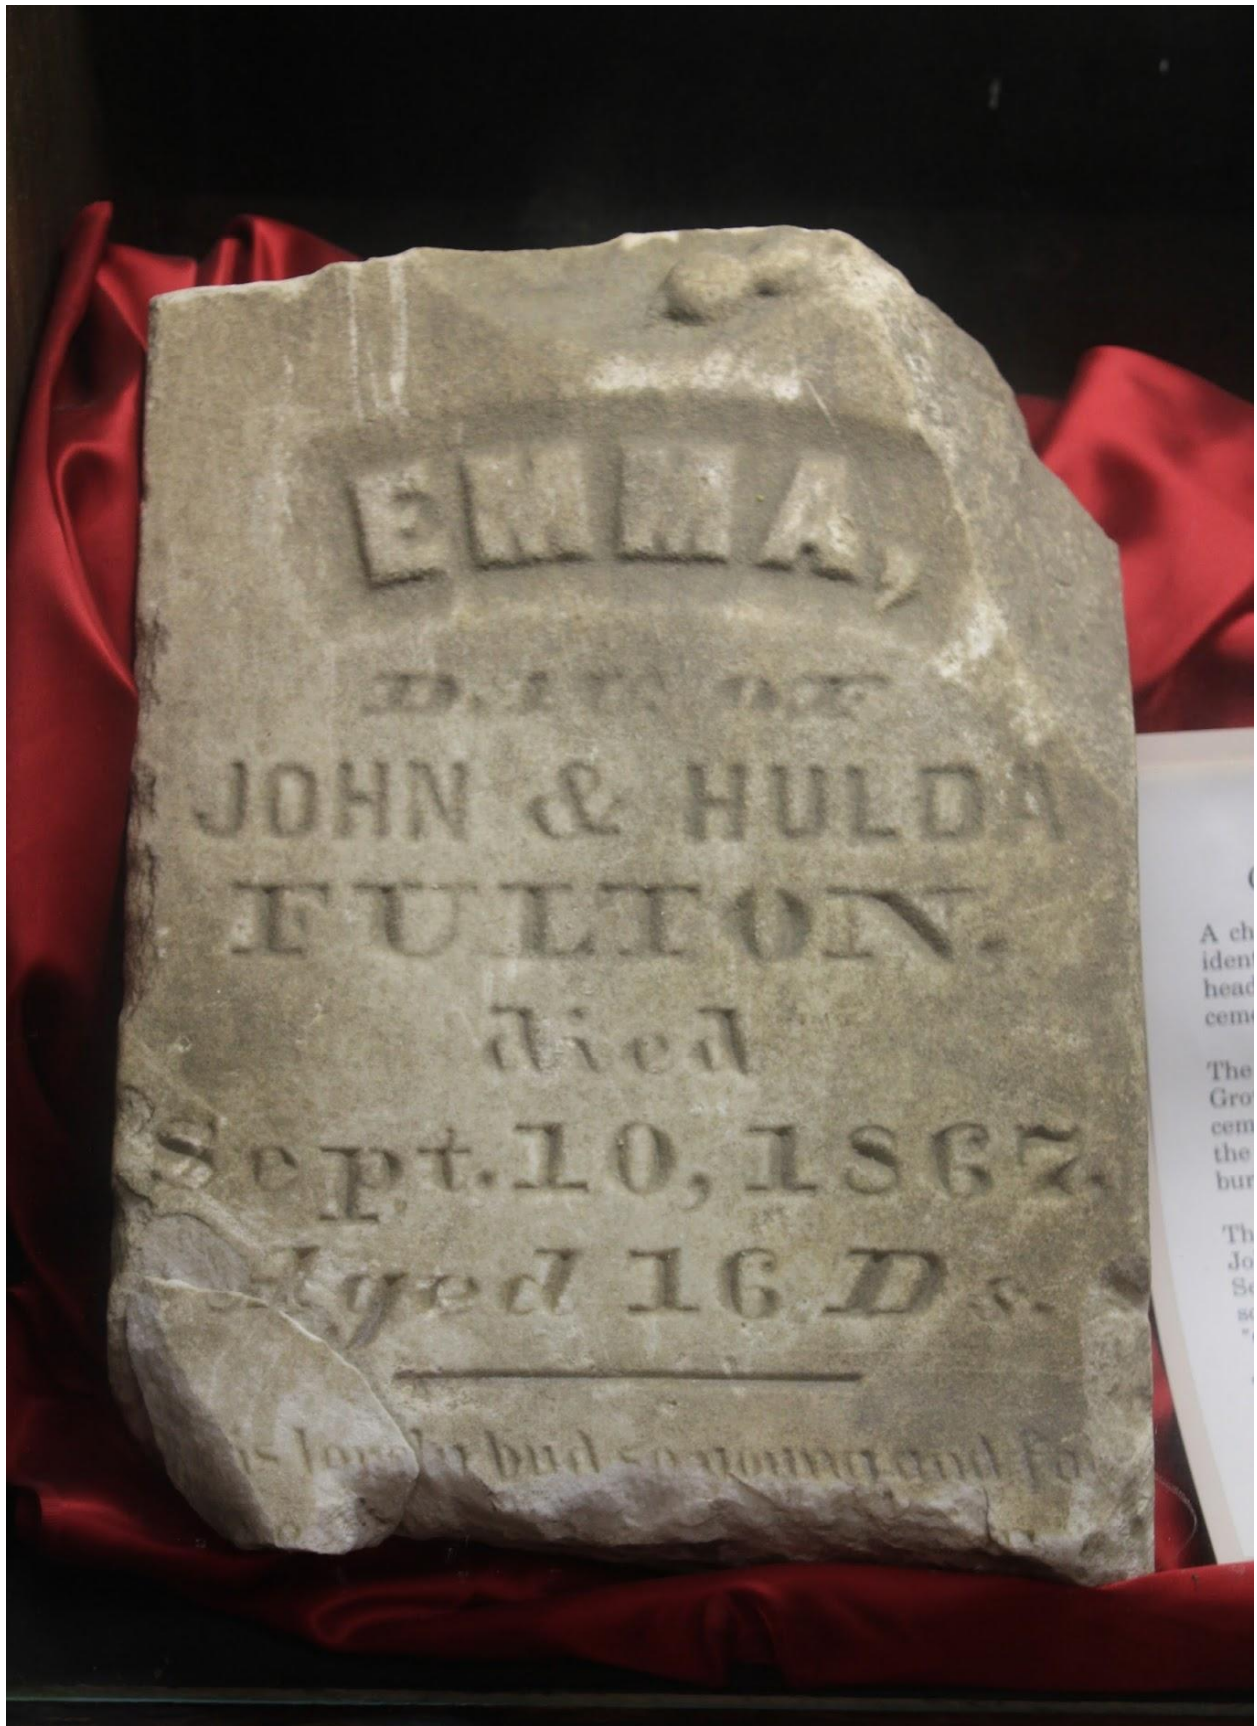 EMMA,
DAU. OF
JOHN & HULDA
FULTON.
died
Sept. 10, 1867.
Aged 16 Ds.
is lovely bud so young and fa
A ch
ident
head
ceme
The
Gro
cem
the
bur
Th
Jo
Se